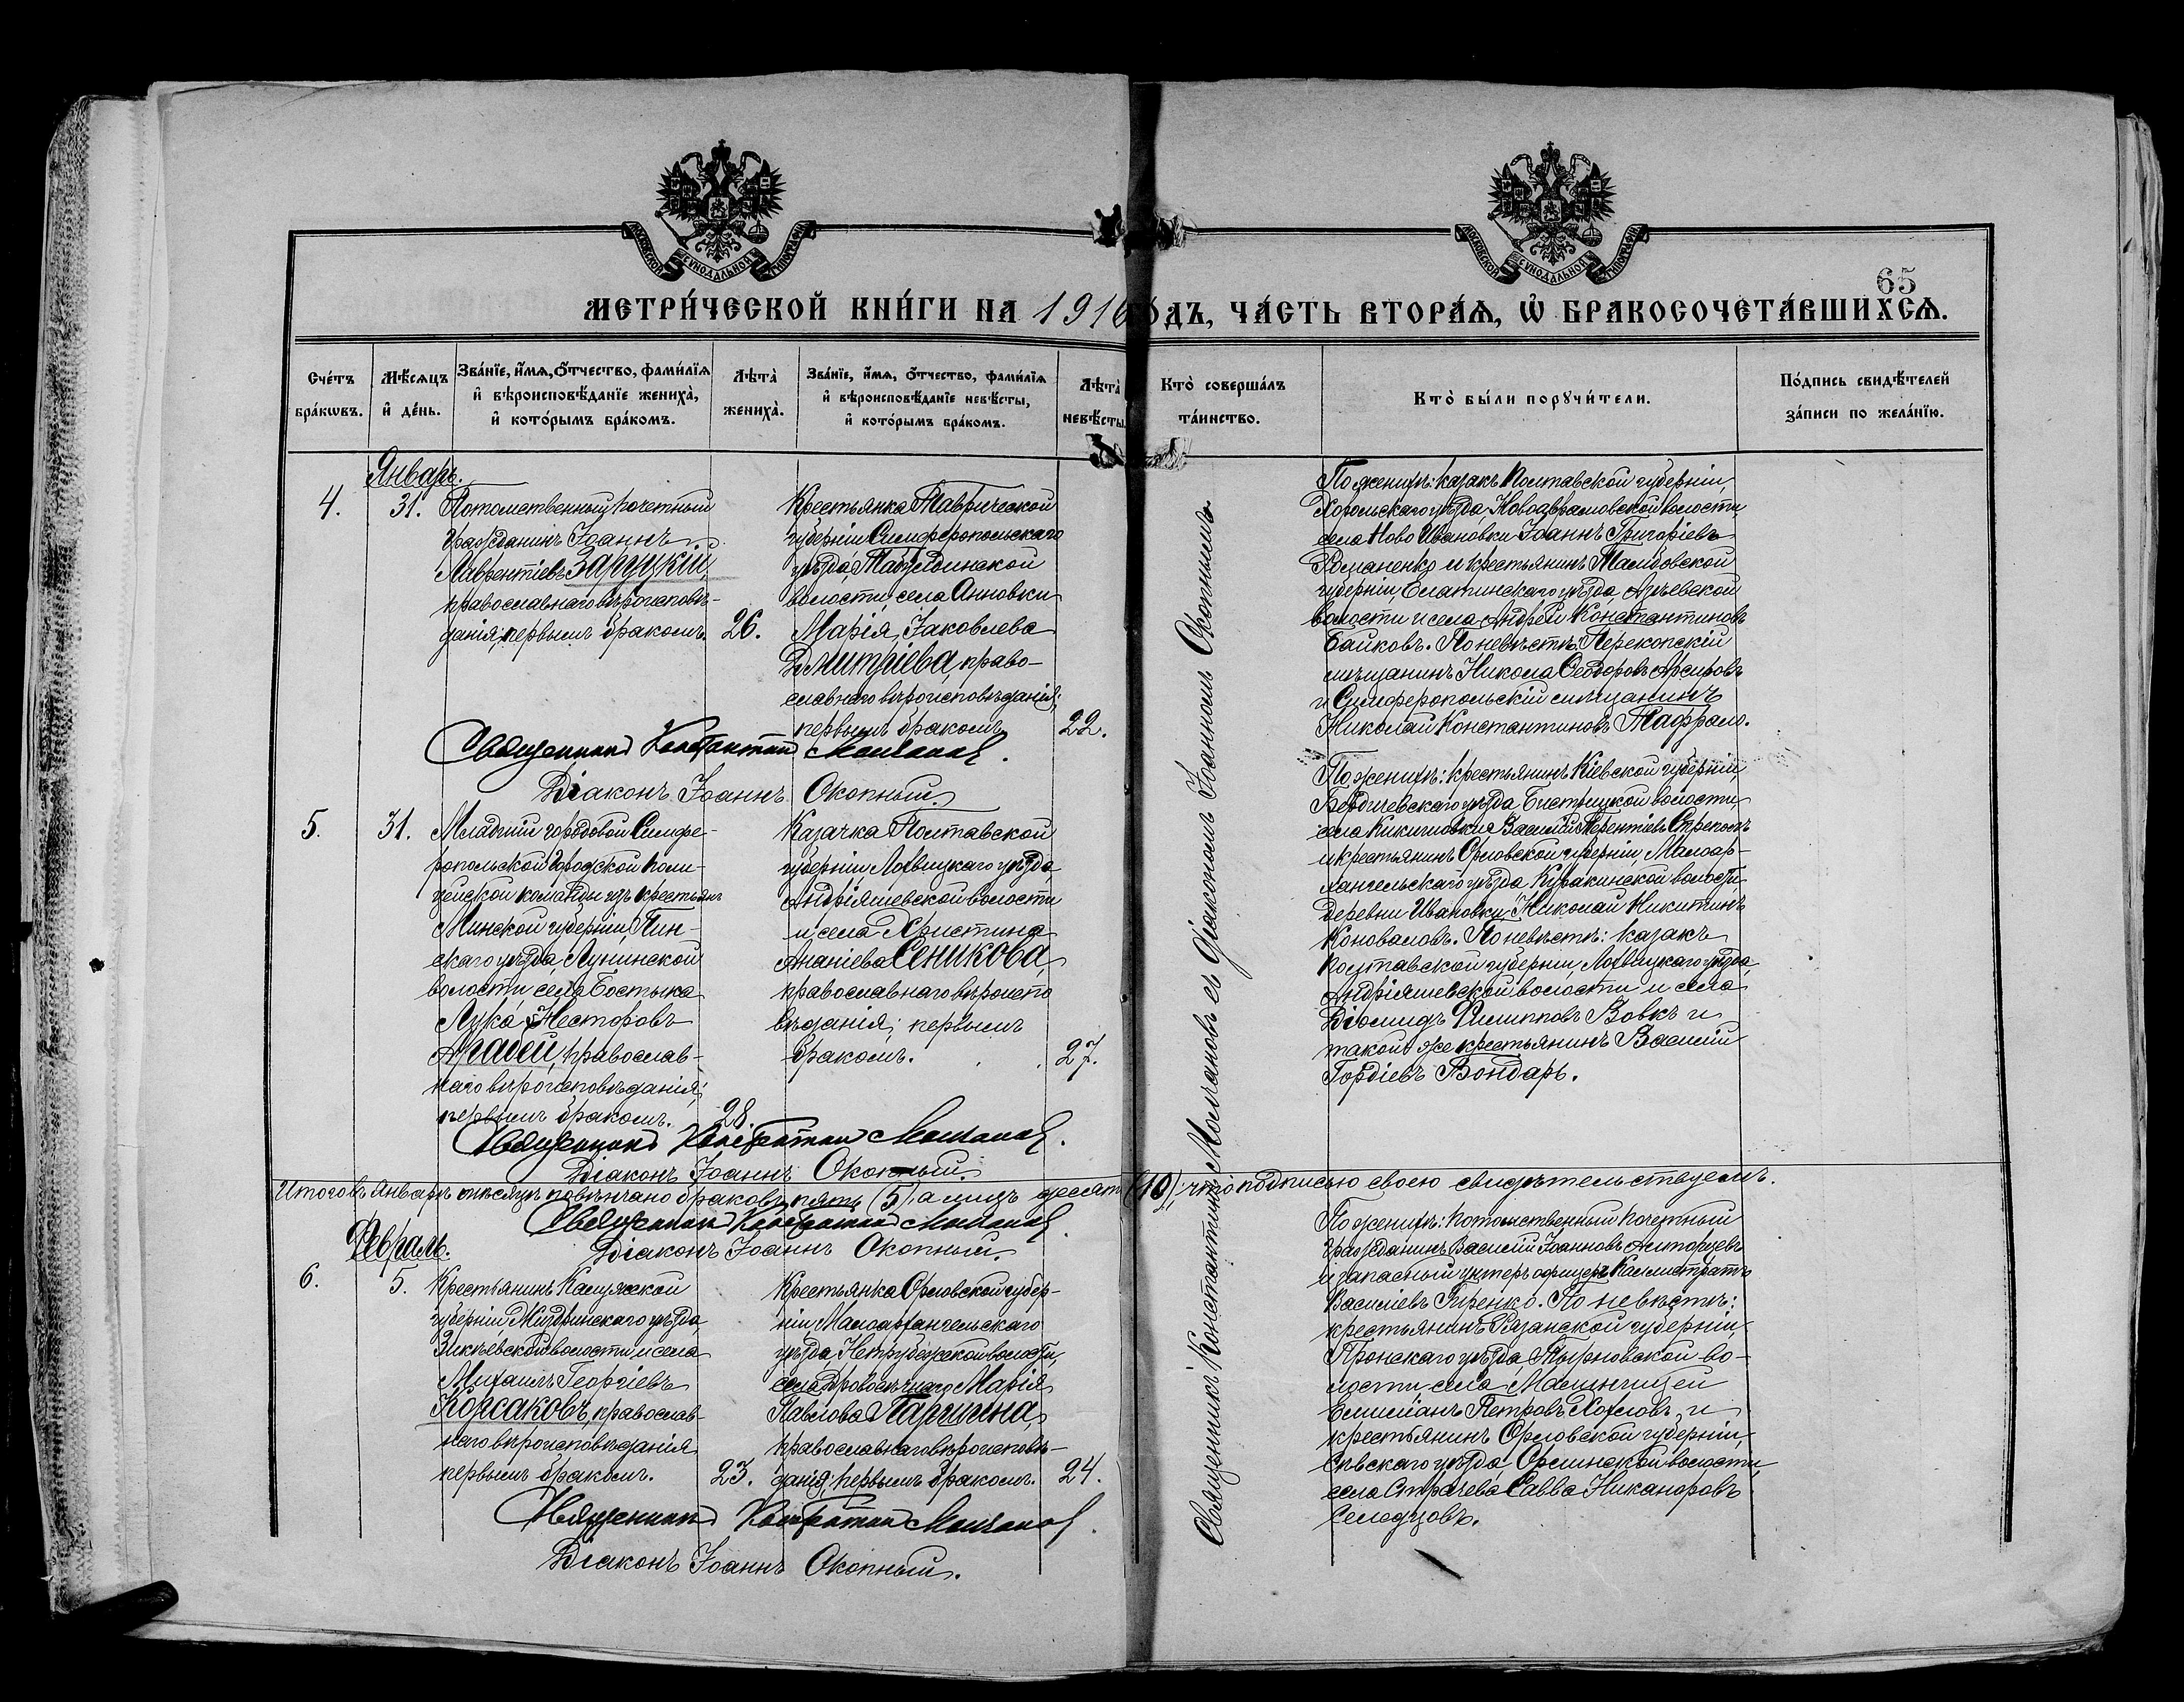 МОСКОВСКОЙ СѴНОДАЛЬНОЙ ТИПОГРАФІИ
МОСКОВСКОЙ СѴНОДАЛЬНОЙ ТИПОГРАФІИ
65
МЕТРИ́ЧЕСКОЙ КНИ́ГИ НА 1916 ГОДЪ, ЧА́СТЬ ВТОРА́Ѧ, Ѡ҆ БРАКОСОЧЕТА́ВШИХСѦ.
Сче́тъ бра́кѡвъ.
Мѣ́сѧцъ и҆ де́нь.
Зва́нїе, и҆́мѧ, ѻ҆́тчество, фамі́лїѧ и҆ вѣроисповѣ́данїе жениха̀, и҆ кото́рымъ бра́комъ.
Лѣ́та жениха̀.
Зва́нїе, и҆́мѧ, ѻ҆́тчество, фамі́лїѧ и҆ вѣроисповѣ́данїе невѣ́сты, и҆ кото́рымъ бра́комъ.
Лѣ́та невѣ́сты
Кто̀ соверша́лъ та́инство.
Кто̀ бы́ли порꙋчи́тели.
По́дпись свидѣ́телей за́писи по жела́нїю.
Январь.
4.
31.
Потомственный почетный
гражданинъ Іоаннъ
Лаврентіевъ Заруцкій,
православнаго вѣроисповѣ-
данія, первымъ бракомъ.
26.
Крестьянка Таврической
губерніи Симферопольскаго
уѣзда,
волости, села Анновки
Марія Іаковлева
Дмитріева, право-
славнаго вѣроисповѣданія;
первымъ бракомъ
22.
Священникъ Константинъ Молчановъ.
Діаконъ Іоаннъ Окопный.
Священникъ Константинъ Молчановъ съ діакономъ Іоанномъ Окопнымъ.
По женихѣ: казакъ Полтавской губерніи,
Хорольскаго уѣзда, Новоаврамовской волости,
села Ново Ивановки Іоаннъ Григоріевъ
Романенко и крестьянинъ Тамбовской
губерніи, Елатинскаго уѣзда
волости и села Андрей Константиновъ
Байковъ. По невѣстѣ: Перекопскій
мѣщанинъ Никола Ѳеодоровъ
и Симферопольскій мѣщанинъ
Николай Константиновъ
5.
31.
Младшій городовой Симфе-
ропольской городской поли-
цейской команды изъ крестьянъ
Минской губерніи, Пин-
скаго уѣзда, Лунинской
волости села Бостыка
Лука Несторовъ
Арабей, православ-
наго вѣроисповѣданія;
первымъ бракомъ.
28.
Казачка Полтавской
губерніи Лохвицкаго уѣзда,
Андріяшевской волости
и села Христина
Ананіева Сеникова,
православнаго вѣроиспо
вѣданія; первымъ
бракомъ.
27.
По женихѣ: крестьянинъ Кіевской губерніи,
Бердичевскаго уѣзда волости,
села Василій Терентіевъ
и крестьянинъ Орловской губерніи, Малоар-
хангельскаго уѣзда Куракинской волости,
деревни Ивановки, Николай Никитинъ
Коноваловъ. По невѣстѣ: казакъ
Полтавской губерніи, Лохвицкаго уѣзда,
Андріяшевской волости и села
Діомидъ Филипповъ Вовкъ и
такой же крестьянинъ Василій
Гордіевъ Бондарь.
Священникъ Константинъ Молчановъ.
Діаконъ Іоаннъ Окопный.
Итого въ Январѣ мѣсяцѣ повѣнчано браковъ пять (5), а лицъ десять (10); что подписью своею свидѣтельствуемъ.
Священникъ Константинъ Молчановъ.
Діаконъ Іоаннъ Окопный.
Февраль.
6.
5.
Крестьянинъ Калужской
губерніи, Жиздринскаго уѣзда,
Зикѣевской волости и села
Михаилъ Георгіевъ
Корсаковъ, православ-
наго вѣроисповѣданія
первымъ бракомъ.
23.
Крестьянка Орловской губер-
ніи, Малоархангельскаго
уѣзда, волости,
села Марія
Павлова Паршина,
православнаго вѣроисповѣ-
данія; первымъ бракомъ.
24.
По женихѣ: потомственный почетный
гражданинъ Василій Іоанновъ
и запасный унтеръ офицеръ Каллистратъ
Василіевъ Гиренко. По невѣстѣ:
крестьянинъ Рязанской губерніи,
Пронскаго уѣзда, Тырновской во-
лости, села
Емиліанъ Петровъ и
крестьянинъ Орловской губерніи,
Сѣвскаго уѣзда, волости,
села Савва Никаноровъ
Селедцовъ.
Священникъ Константинъ Молчановъ.
Діаконъ Іоаннъ Окопный.